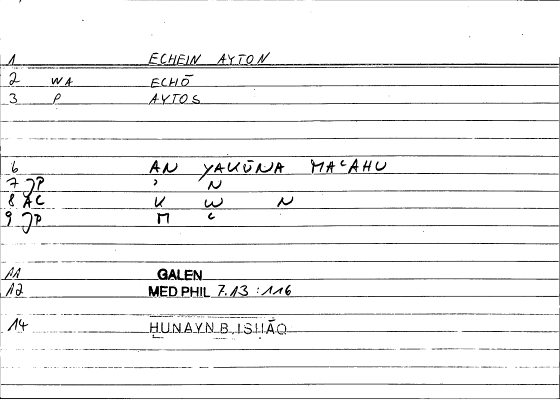 1 ECHEIN AYTON
2 WA ECHŌ
3 P AYTOS
6 AN YAKŪNA MAʿAHU
7 JP ʾ N
8 AC K W N
9 JP M ʿ
11 GALEN
12 MED PHIL 7.13 : 116
14 HUNAYN B. ISHĀQ